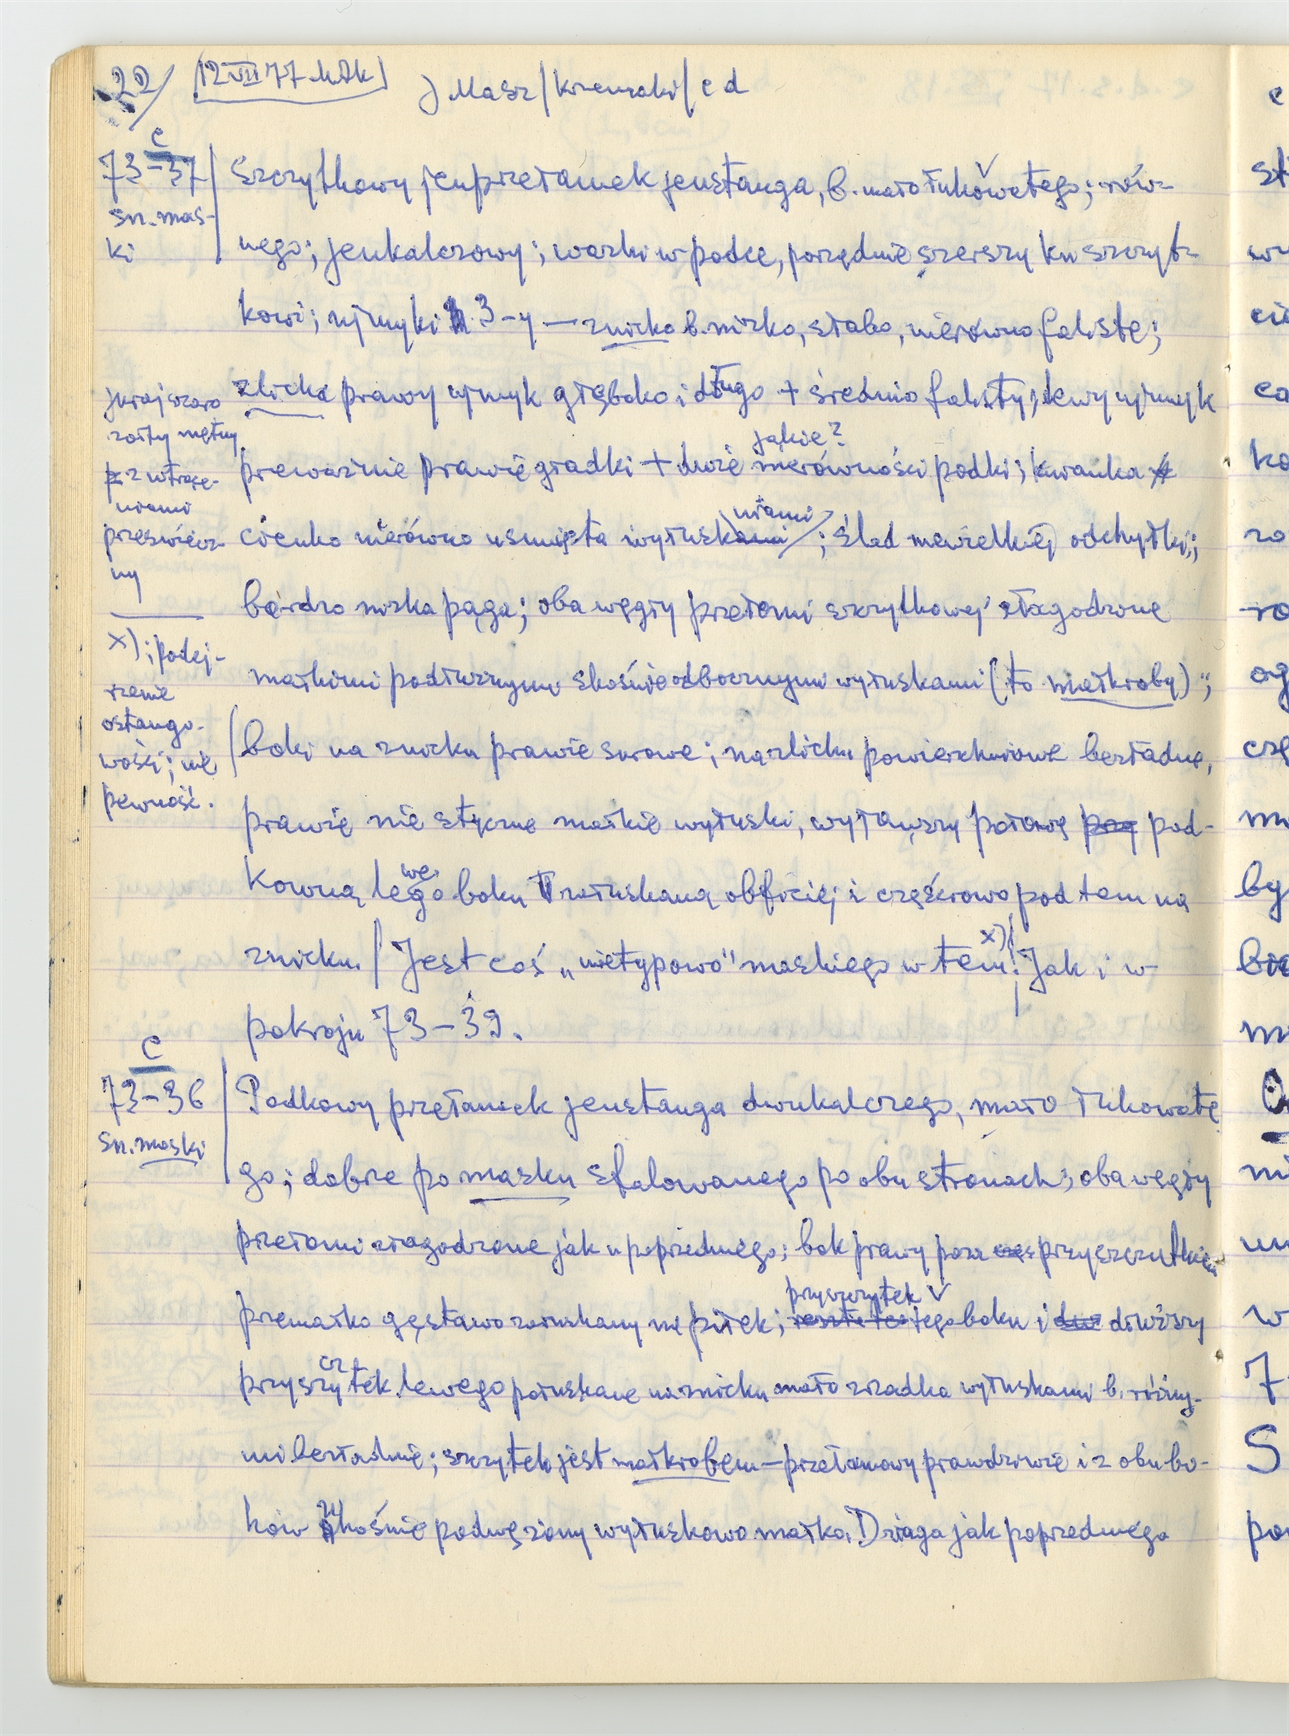 22/ [12 VII 77 MAk] J Masz/krzemaki/c d
c
73-37
sn. mas-
ki
Szczytkowy jenprzełamek jenstanga, b. mało łukowatego; rów-
nego; jenkalczowy; wązki w podce, porządnie szerszy ku szczyt-
kowi; ujmyki 3-y — znicka b. nizko, słabo, nierówno faliste;
zlicka prawy ujmyk głęboko i długo + średnio falisty; lewy ujmyk
jakie?
przeważnie prawie gradki + duże nierówności podki; kwauka
niami
cienko nierówno usunięta wyłuskami; ślad niewielkiej odchyłki;
bardzo nizka pąga; oba węgły przełomi szczytkowej złagodzone
małkimi podłużnymi skośnieodbocznymi wyłuskami (to małkroby);
boki na znicku prawie surowe; na zlicku powierzchniowe bezładne,
prawie nie styczne małkie wyłuski, wyjąwszy połowę pod-
we
kowną lego boku załuskaną obficiej i częściowo pod tem na
znicku. / Jest coś „nietypowo" maskiego w tem x)! Jak i w
pokroju 73-39.
juraj szaro
żółty mętny
z wtrące-
niami
prześwież-
ny
x); podej-
rzenie
ostango-
wości; nie
pewność.
c
73-36
sn. maski
Podkowy przełamek jenstanga dwukalczego, mało łukowate
go; dobrze po masku sfalowanego po obu stronach; oba węgły
przełomi złagodzone jak u poprzedniego; bok prawy poza przyszczytkiem
przyszczytek
przemałko gęstawo załuskany na piłek; tego boku i dłuższy
cz
przyszytek lewego połuskane na znicku mało zrzadka wyłuskami b. różny-
mi bezładnie; szczytek jest małkrobem — przełamowy prawdziwie i z obu bo-
ków skośnie podwężony wyłuskowo małko. Dziaga jak poprzedniego